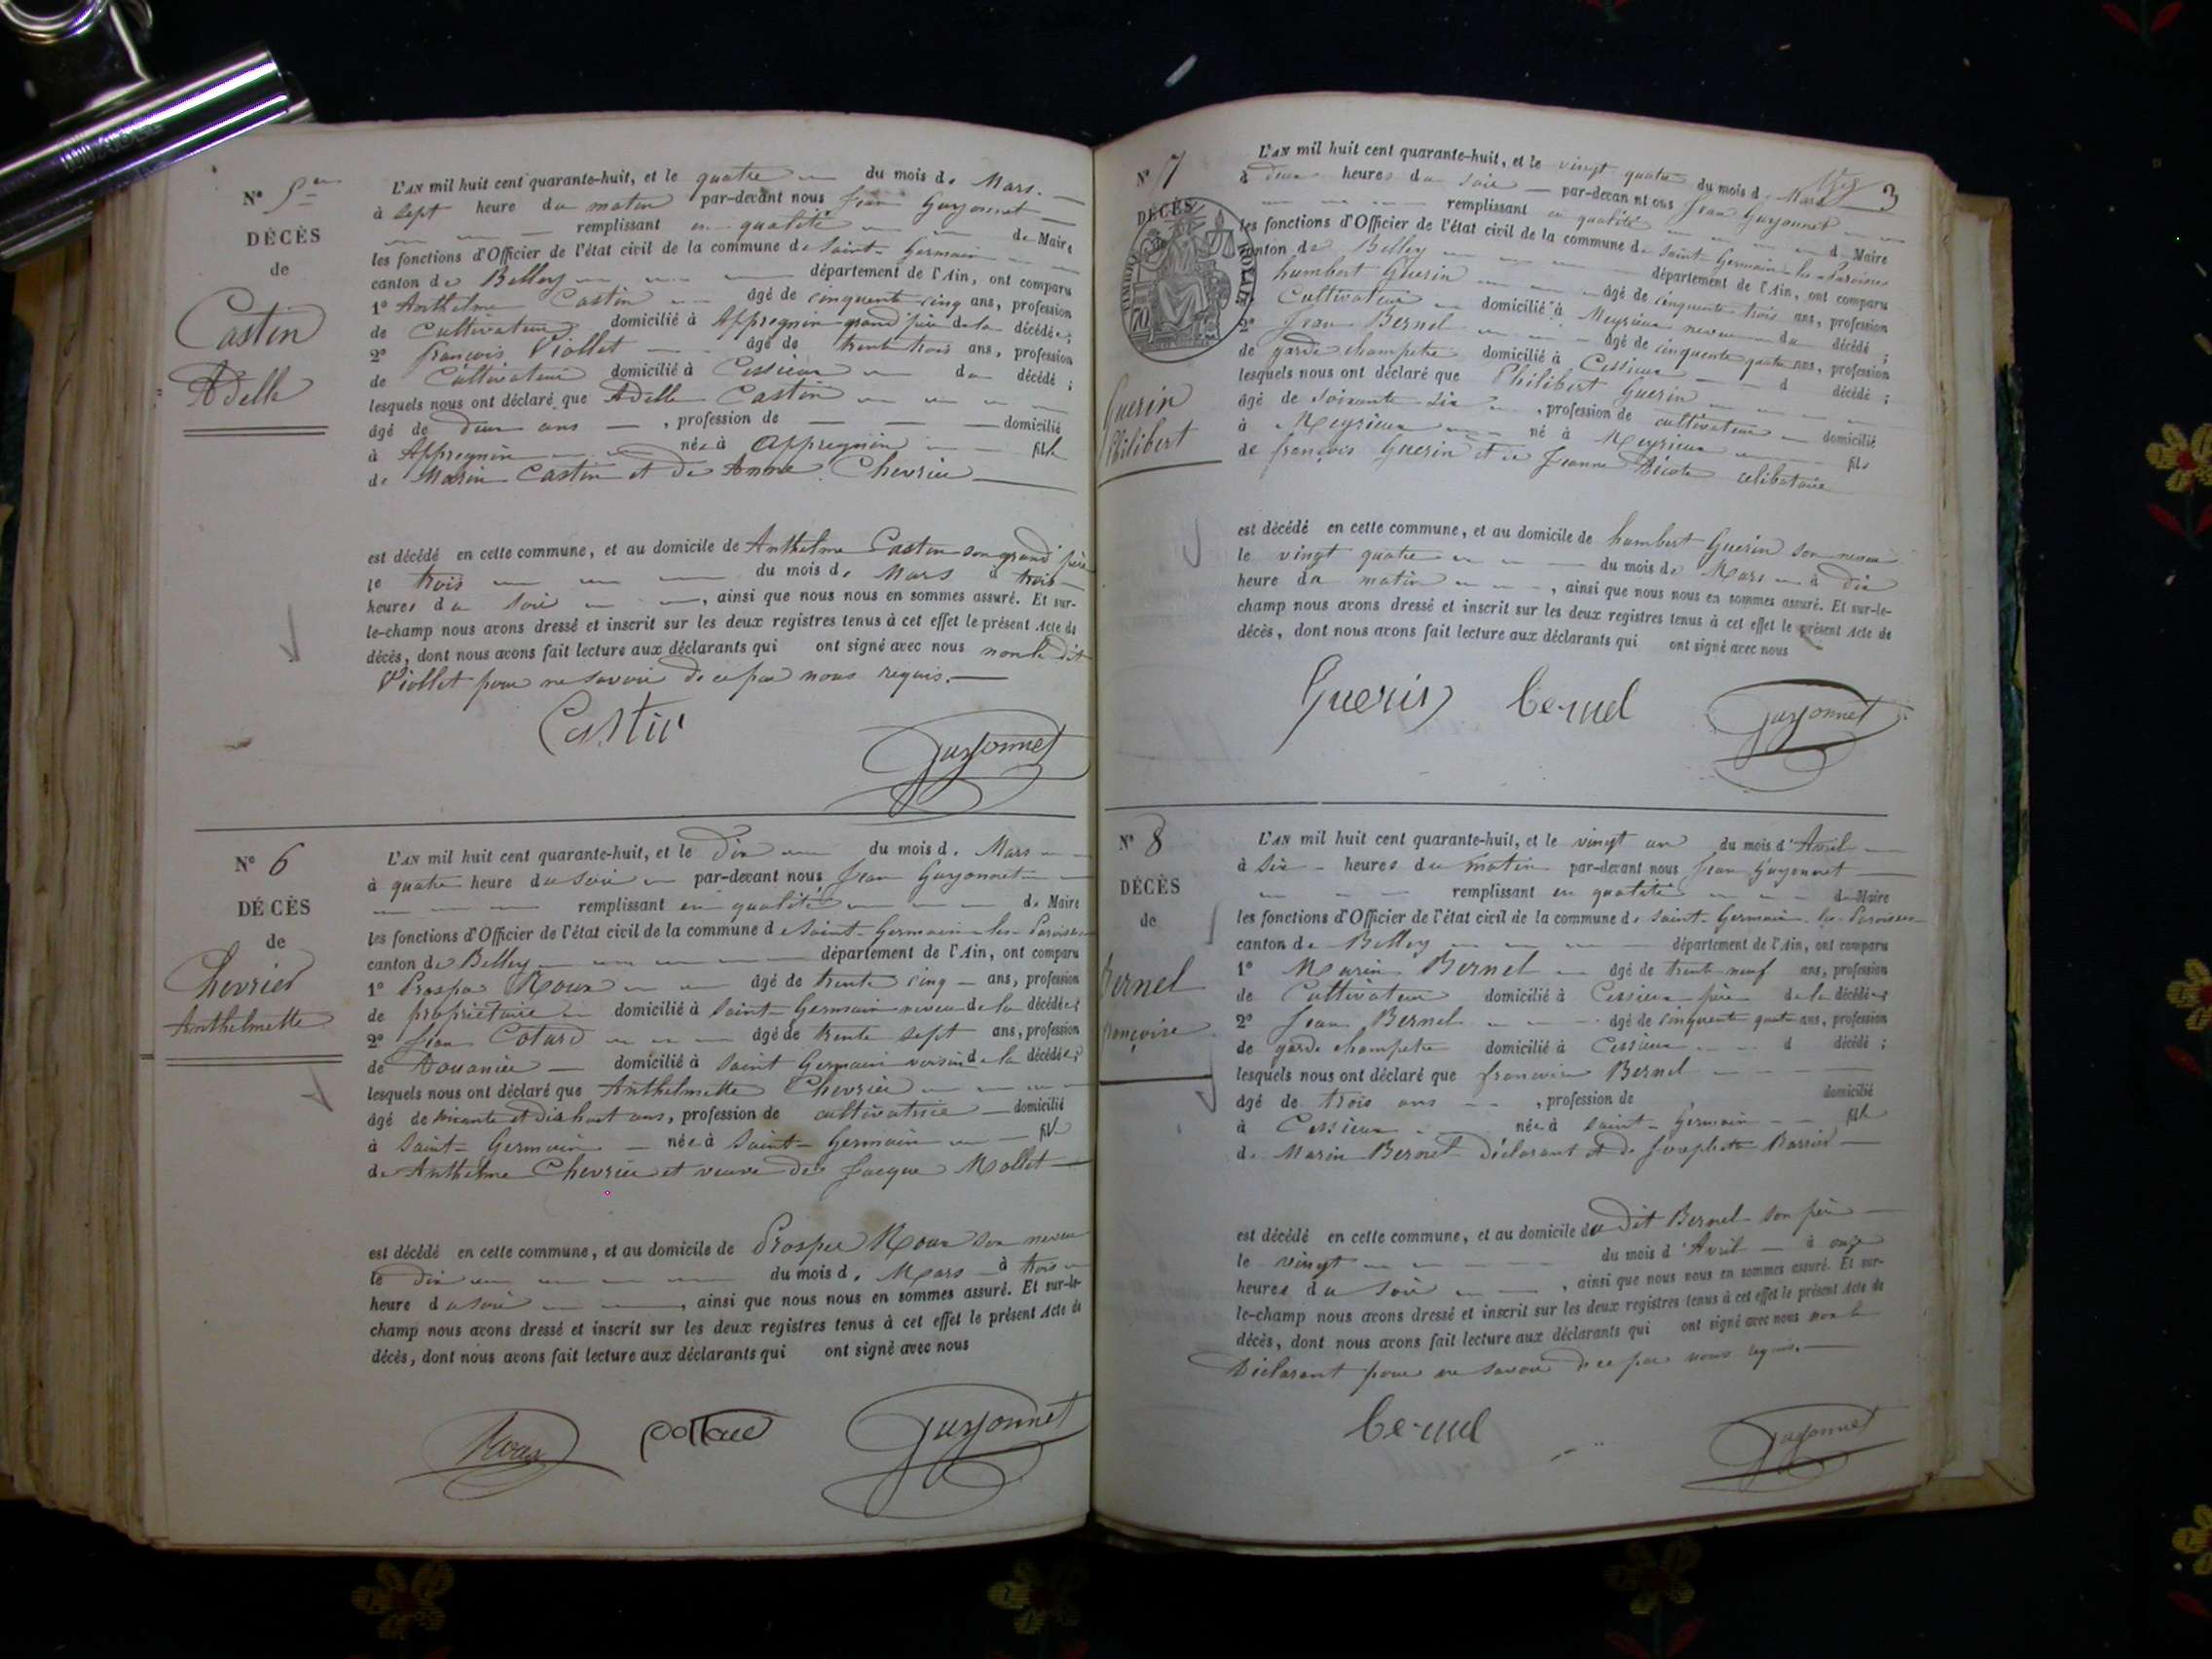 N° 5
DÉCÈS
de
Castin
Adelle
L'AN mil huit cent quarante-huit, et le quatre du mois de Mars.
à sept heure du matin par-devant nous Jean Guyonnet
remplissant en qualité de Maire
les fonctions d'Officier de l'état civil de la commune de Saint-Germain
canton de Belley département de l'Ain, ont comparu
1° Anthelme Castin âgé de cinquente cinq ans, profession
de Cultivateur domicilié à Appregnin grand père de la décédée;
2° françois Viollet âgé de trente trois ans, profession
de Cultivateur domicilié à Cessieux du décédé;
lesquels nous ont déclaré que Adelle Castin
âgé de deux ans, profession de domicilié
à Appregnin née à Appregnin fille
de Marin Castin et de Anne Chevrier
est décédé en cette commune, et au domicile de Anthelme Castin son grand père
le trois du mois de Mars à trois
heures du soir, ainsi que nous nous en sommes assuré. Et sur-
le-champ nous avons dressé et inscrit sur les deux registres tenus à cet effet le présent Acte de
décès, dont nous avons fait lecture aux déclarants qui ont signé avec nous non le dit
Viollet pour ne savoir de ce par nous requis.
Castin
Guyonnet
N° 6
DÉCÈS
de
Chevrier
Anthelmette
L'AN mil huit cent quarante-huit, et le dix du mois de Mars
à quatre heure du soir par-devant nous Jean Guyonnet
remplissant en qualité de Maire
les fonctions d'Officier de l'état civil de la commune de Saint-Germain-les-Paroisses
canton de Belley département de l'Ain, ont comparu
1° Prosper Roux âgé de trente cinq ans, profession
de propriétaire domicilié à Saint-Germain neveu de la décédée;
2° Jean Cotard âgé de trente sept ans, profession
de Douanier domicilié à Saint Germain voisin de la décédée;
lesquels nous ont déclaré que Anthelmette Chevrier
âgé de soixante et dix huit ans, profession de cultivatrice domicilié
à Saint-Germain née à Saint-Germain fille
de Anthelme Chevrier et veuve de Jacque Mollet
est décédé en cette commune, et au domicile de Prosper Roux son neveu
le dix du mois de Mars à trois
heure du soir, ainsi que nous nous en sommes assuré. Et sur-le-
champ nous avons dressé et inscrit sur les deux registres tenus à cet effet le présent Acte de
décès, dont nous avons fait lecture aux déclarants qui ont signé avec nous
Roux Cottard Guyonnet
3
N° 7
DÉCÈS
TIMBRE ROYALE
70
Guerin
Philibert
L'AN mil huit cent quarante-huit, et le vingt quatre du mois de Mars
à deux heures du soir par-devant nous Jean Guyonnet
remplissant en qualité de Maire
les fonctions d'Officier de l'état civil de la commune de Saint Germain-les-Paroisses
canton de Belley département de l'Ain, ont comparu
humbert Guerin âgé de cinquente trois ans, profession
Cultivateur domicilié à Meyrieux neveu du décédé;
2° Jean Bernel âgé de cinquente quatre ans, profession
de garde champetre domicilié à Cessieux d décédé;
lesquels nous ont déclaré que Philibert Guerin
âgé de soixante six, profession de cultivateur domicilié
à Meyrieux né à Meyrieux fils
de françois Guerin et de Jeanne célibataire
est décédé en cette commune, et au domicile de humbert Guerin son neveu
le vingt quatre du mois de Mars à dix
heure du matin, ainsi que nous nous en sommes assuré. Et sur-le-
champ nous avons dressé et inscrit sur les deux registres tenus à cet effet le présent Acte de
décès, dont nous avons fait lecture aux déclarants qui ont signé avec nous
Guerin bernel Guyonnet
N° 8
DÉCÈS
de
Bernel
françoise
L'AN mil huit cent quarante-huit, et le vingt un du mois d'Avril
à six heures du matin par-devant nous Jean Guyonnet
remplissant en qualité de Maire
les fonctions d'Officier de l'état civil de la commune de Saint-Germain-les-Paroisses
canton de Belley département de l'Ain, ont comparu
1° Marin Bernel âgé de trente neuf ans, profession
de Cultivateur domicilié à Cessieux père de la décédée;
2° Jean Bernel âgé de cinquente quatre ans, profession
de garde champetre domicilié à Cessieux d décédé;
lesquels nous ont déclaré que françoise Bernel
âgé de trois ans, profession de domicilié
à Cessieux née à Saint-Germain fille
de Marin Bernel Déclarant et de Josephte Barrier
est décédé en cette commune, et au domicile du dit Bernel son père
le vingt du mois d'Avril à onze
heures du soir, ainsi que nous nous en sommes assuré. Et sur-
le-champ nous avons dressé et inscrit sur les deux registres tenus à cet effet le présent Acte de
décès, dont nous avons fait lecture aux déclarants qui ont signé avec nous non le
Déclarant pour ne savoir de ce par nous requis.
bernel Guyonnet